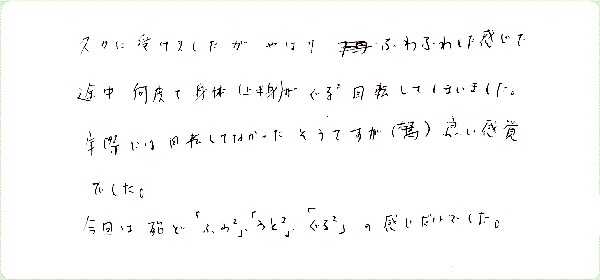 スグに受けスしたが やはり ふわふわした感じで
途中 何度も身体(上半身)が ぐる² 回転してしまいました。
実際には回転してなかったそうですが(驚) 良い感覚
でした。
今回は殆ど「ふわ²」、「うと²」、「ぐる²」の感じだけでした。